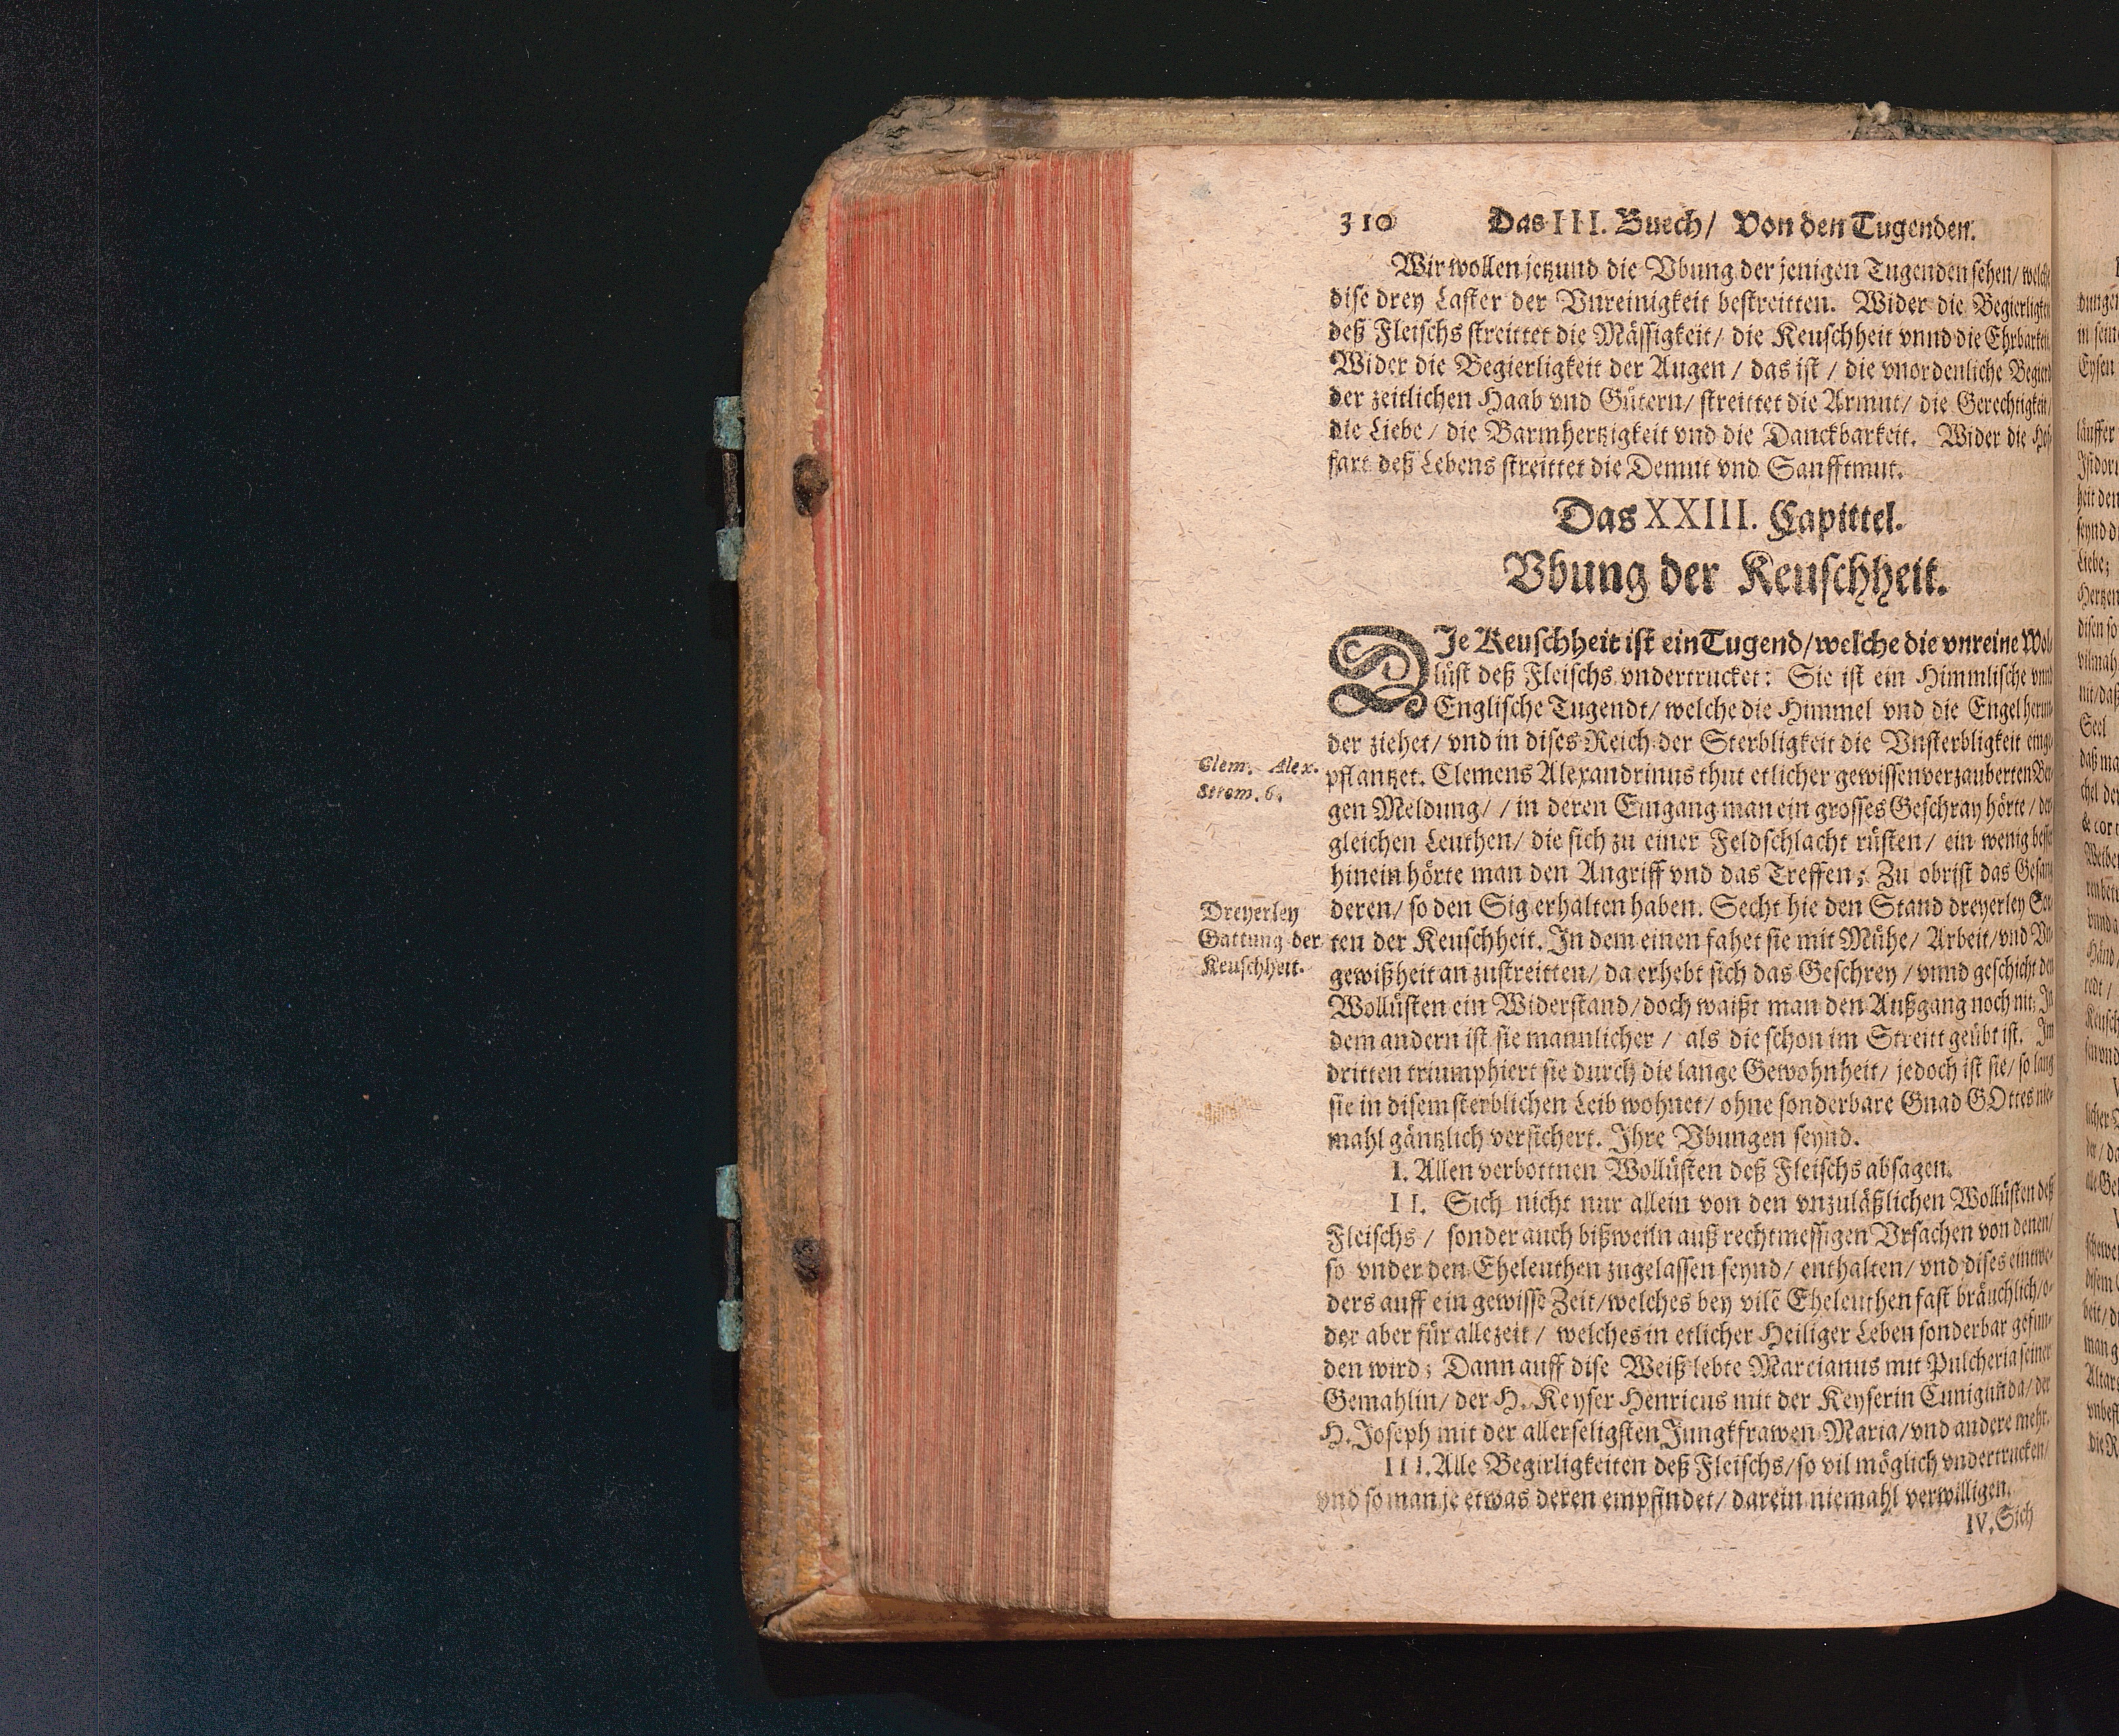 310 Das III. Buech/ Von den Tugenden.
Wir wollen jetzund die Vbung der jenigen Tugenden sehen/ welche
dise drey Laster der Vnreinigkeit bestreitten. Wider die Begierligkeit
deß Fleischs streittet die Mässigkeit/ die Keuschheit vnnd die Ehrbarkeit.
Wider die Begierligkeit der Augen/ das ist/ die vnordenliche Begierd
der zeitlichen Haab vnd Gütern/ streittet die Armut/ die Gerechtigkeit/
die Liebe/ die Barmhertzigkeit vnd die Danckbarkeit. Wider die Hof-
fart deß Lebens streittet die Demut vnd Sanfftmut.
Das XXIII. Capittel.
Vbung der Keuschheit.
DIe Keuschheit ist ein Tugend/ welche die vnreine Wol-
lüst deß Fleischs vndertrucket: Sie ist ein Himmlische vnnd
Englische Tugendt/ welche die Himmel vnd die Engel herun-
der ziehet/ vnd in dises Reich der Sterbligkeit die Vnsterbligkeit einge-
Clem. Alex.
Strom. 6.
pflantzet. Clemens Alexandrinus thut etlicher gewissen verzauberten Ber-
gen Meldung/ / in deren Eingang man ein grosses Geschray hörte/ der-
gleichen Leuthen/ die sich zu einer Feldschlacht rüsten/ ein wenig besser
hinein hörte man den Angriff vnd das Treffen; Zu obrist das Gesang
Dreyerley
Gattung der
Keuschheit.
deren/ so den Sig erhalten haben. Secht hie den Stand dreyerley Sor-
ten der Keuschheit. In dem einen fahet sie mit Mühe/ Arbeit/ vnd Vn-
gewißheit an zustreitten/ da erhebt sich das Geschrey/ vnnd geschicht den
Wollüsten ein Widerstand/ doch waißt man den Außgang noch nit; In
dem andern ist sie mannlicher/ als die schon im Streitt geübt ist. Im
dritten triumphiert sie durch die lange Gewohnheit/ jedoch ist sie/ so lang
sie in disem sterblichen Leib wohnet/ ohne sonderbare Gnad GOttes nie-
mahl gäntzlich versichert. Ihre Vbungen seynd.
I. Allen verbottnen Wollüsten deß Fleischs absagen.
II. Sich nicht nur allein von den vnzuläßlichen Wollüsten deß
Fleischs/ sonder auch bißweiln auß rechtmessigen Vrsachen von denen/
so vnder den Eheleuthen zugelassen seynd/ enthalten/ vnd dises eintwe-
ders auff ein gewisse Zeit/ welches bey vilẽ Eheleuthen fast bräuchlich/ o-
der aber für allezeit/ welches in etlicher Heiliger Leben sonderbar gefun-
den wird; Dann auff dise Weiß lebte Marcianus mit Pulcheria seiner
Gemahlin/ der H. Keyser Henricus mit der Keyserin Cunigunda/ der
H. Joseph mit der allerseligsten Jungkfrawen Maria/ vnd andere mehr.
III. Alle Begirligkeiten deß Fleischs/ so vil möglich vndertrucken/
vnd so man je etwas deren empfindet/ darein niemahl verwilligen.
IV. Sich